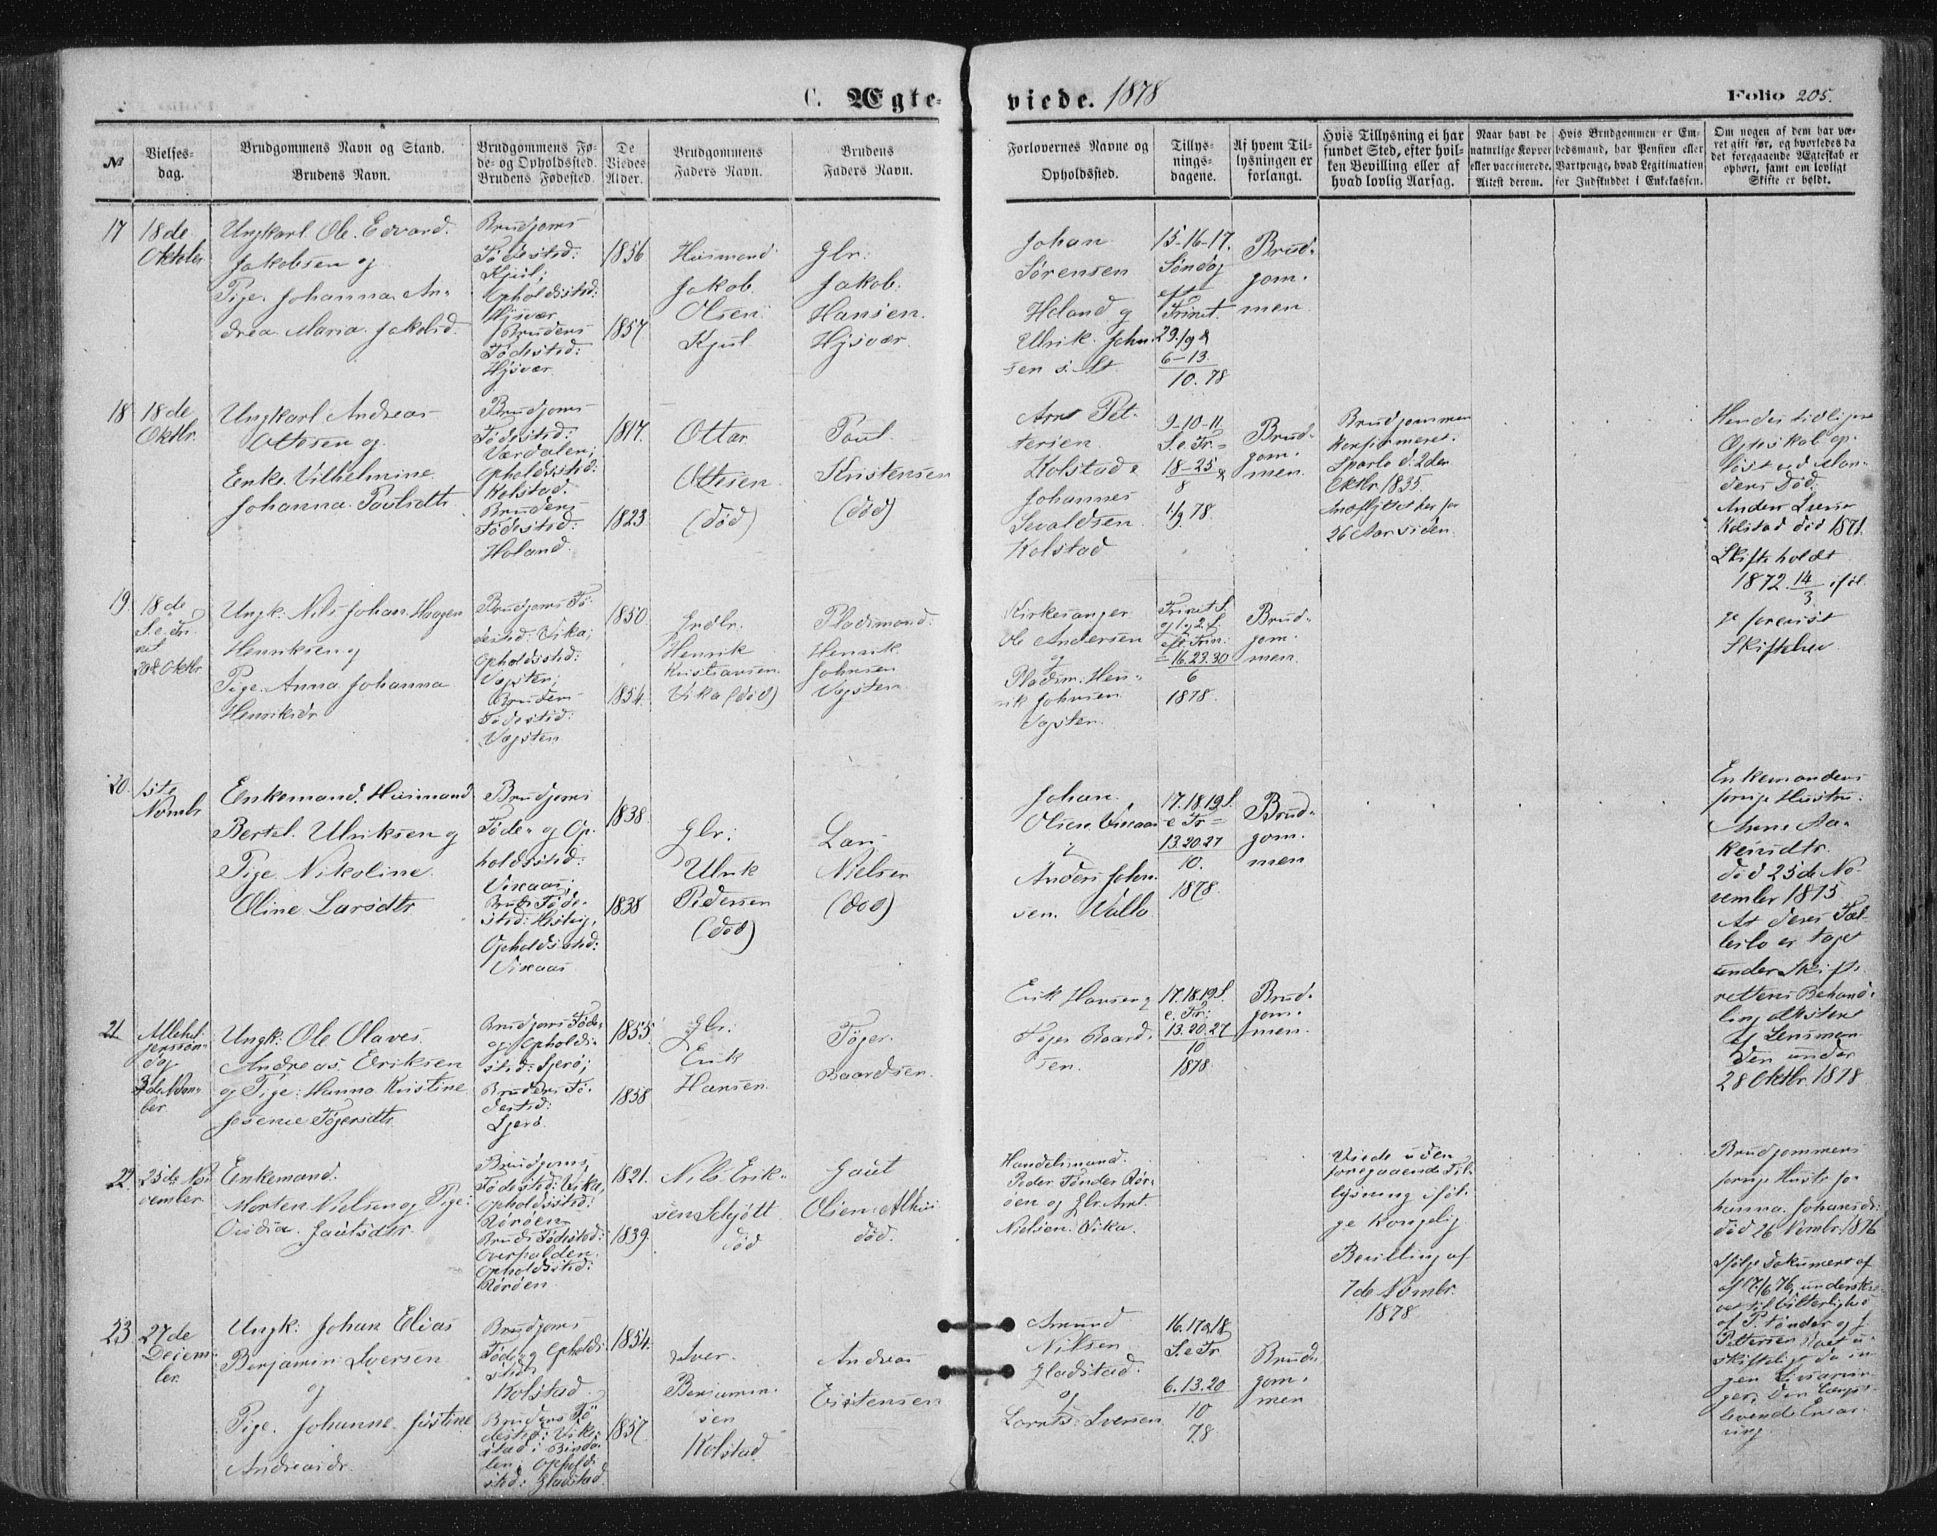 C. Ægte-
viede. 1878
Folio 205.
No
Vielses-
dag.
Brudgommens Navn og Stand.
Brudens Navn.
Brudgommens Fø-
de- og Opholdssted.
Brudens Fødested.
De
Viedes
Alder.
Brudgommens
Faders Navn.
Brudens
Faders Navn.
Forlovernes Navne og
Opholdssted.
Tillys-
nings-
dagene.
Af hvem Til-
lysningen er
forlangt.
Hvis Tillysning ei har
fundet Sted, efter hvil-
ken Bevilling eller af
hvad lovlig Aarsag.
Naar havt de
naturlige Kopper
eller vaccinerede.
Attest derom.
Hvis Brudgommen er Em-
bedsmand, har Pension eller
Vartpenge, hvad Legitimation
for Indskuddet i Enkekassen.
Om nogen af dem har væ-
ret gift før, og hvorledes da
det foregaaende Ægteskab er
ophørt, samt om lovligt
Skifte er holdt.
17
18de
Oktober
Ungkarl Ole Edvard
Jakobsen og
Pige Johanna An-
drea Maria Jakobsd.
Brudgoms
Fødested:
Kjul;
Opholdssted:
Hjsvær
Brudens
Fødested:
Hjsvær
1856
1857
Husmand
Jakob
Olsen
Kjul
Gbr:
Jakob
Hansen
Hjsvær
Johan
Sørensen
Holand og
Ulrik John-
sen
15-16-17.
Søndag
eft
Trinit.
29/9 &
6-13
10. 78
Brud-
gom-
men
18
18de
Oktbr.
Ungkarl Andreas
Ottesen og
Enke Vilhelmine
Johanna Paulsdtr
Brudgoms
Fødested:
Værdalen;
Opholdssted:
Kolstad.
Brudens
Fødested:
Holand
1817.
1823
Ottar
Ottesen
(død)
Paul
Kristensen
(død)
Arnt Pet-
tersen
Kolstad &
Johannes
Sivaldsen
Kolstad
9-10-11
S. e. Tr. =
18-25 &
8
1/9 78.
Brud-
gom-
men.
Brudgommen
konfirmeret
Sparbo d. 2den
Oktbr. 1835
Indflyttet her for
26 Aar siden
Hendes tidligere
Ægteskab op-
løst ved Man-
dens Død.
Anders Iversen
Kolstad død 1871.
Skifte holdt
1872 14/3 iføl-
ge forevist
Skiftebrev
19
18de
S. e. Tri-
nit
20de Oktbr
Ungk: Nils Johan Haagen
Henriksen og
Pige Anna Johanna
Henriksdr
Brudgoms Fø-
dested: Vika;
Opholdssted:
Vagsten;
Brudens
Fødested:
Vagsten
1850.
1854.
Indbr.
Henrik
Kristiansen
Vika (død)
Pladsmand:
Henrik
Johnsen
Vagsten
Kirkesanger
Ole Andersen
og
Pladsm: Hen-
rik Johnsen
Vagsten.
Trinit S.
og 1 og 2. S.
eft Trin:
= 16. 23. 30
6
1878
Brud-
gom-
men.
20.
1ste
Novmbr
Enkemand, Husmand
Bertel Ulriksen og
Pige Nikoline
Oline Larsdtr
Brudgoms
Føde- og Op-
holdssted:
Vixaas;
Bruds Føde-
sted:
Opholdssted:
Vixaas
1838.
1838
Gbr:
Ulrik
Pedersen
(død)
Lars
Nielsen
(død)
Johan
Olsen Vixaas
&
Anders John-
sen Valla
17. 18. 19 S.
e Tr =
13. 20. 27
10.
1878.
Brud-
gom-
men
Enkemandens
forrige Hustru:
Anne Aa-
kensdtr.
død 25de No-
vember 1875
At deres Fæl-
lesbo er taget
under Skifte-
rettens Behand-
ling attesteret
af Lensman-
den under
28 Oktbr. 1878
21
Allehel-
gensson-
dag
3die Novm-
ber.
Ungk: Ole Olaves
Andreas Eriksen
og Pige: Hanna Kristine
Jesenie Tøgersdtr
Brudgoms Føde-
og Opholds-
sted: Sjerø;
Brudens Fø-
dested:
Sjerø.
1855.
1858
Gbr.
Erik
Hansen
Tøger
Baardsen.
Erik Hansen og
Tøger Baard-
sen.
17. 18. 19 S.
e. Tr:
13. 20. 27
10
1878
Brud-
gom-
men.
22.
25de No-
vember.
Enkemand
Morten Nielsen og Pige:
Ovidia Gautsdtr
Brudgoms
Fødested: Vika,
Opholdssted:
Rørøen
Bruds Fødested:
Overhalden.
Opholdssted:
Rørøen.
1821.
1839
Nils Erik-
sen Schjøtt
død
Gaut
Olsen
død.
Handelsmand
Peder Tønder Rør-
øen og Gbr. Arnt
Nielsen Vika.
Viede uden
foregaaende Til-
lysning iføl-
ge Kongelig
Bevilling af
7de Novmbr.
1878
Brudgommens
forrige Hustr. Jo-
hanna Johansdr:
død 26 Novmbr. 1876
Ifølge Dokument af
17/6 76, underskre-
vet
af P. Tønder og J.
Pettersen
23
27de
Decem-
ber.
Ungk: Johan Elias
Benjamin Iversen
og
Pige Johanne Justine
Andreasdr.
Brudgoms
Føde og Opholds-
sted:
Kolstad
Brudens Fø-
dested: Vik-
stad i Bindа-
len; Opholds-
sted: Gladstad
1854.
1857
Iver
Benjamin-
sen
Kolstad
Andreas
Eistensen
Amund
Nilsen
Gladstad
og
Lornts Iversen
16. 17 & 18
S. e Tr
6. 13. 20
10
78
Brud-
gom-
men